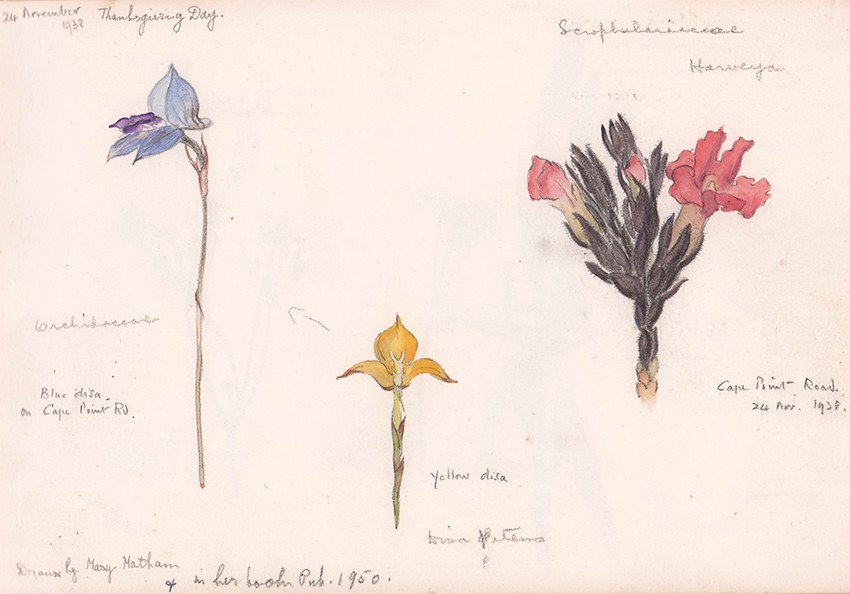 24 November
1938
Thanksgiving Day.
Scrophulariaceae
Harveya
Orchidaceae
Blue disa.
on Cape Point Rd.
Cape Point Road.
24 Nov. 1938.
Yellow disa
Disa
Drawn by Mary Matham
& in her book Pub. 1950.